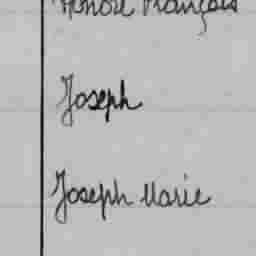 Honoré François
Joseph
Joseph Marie